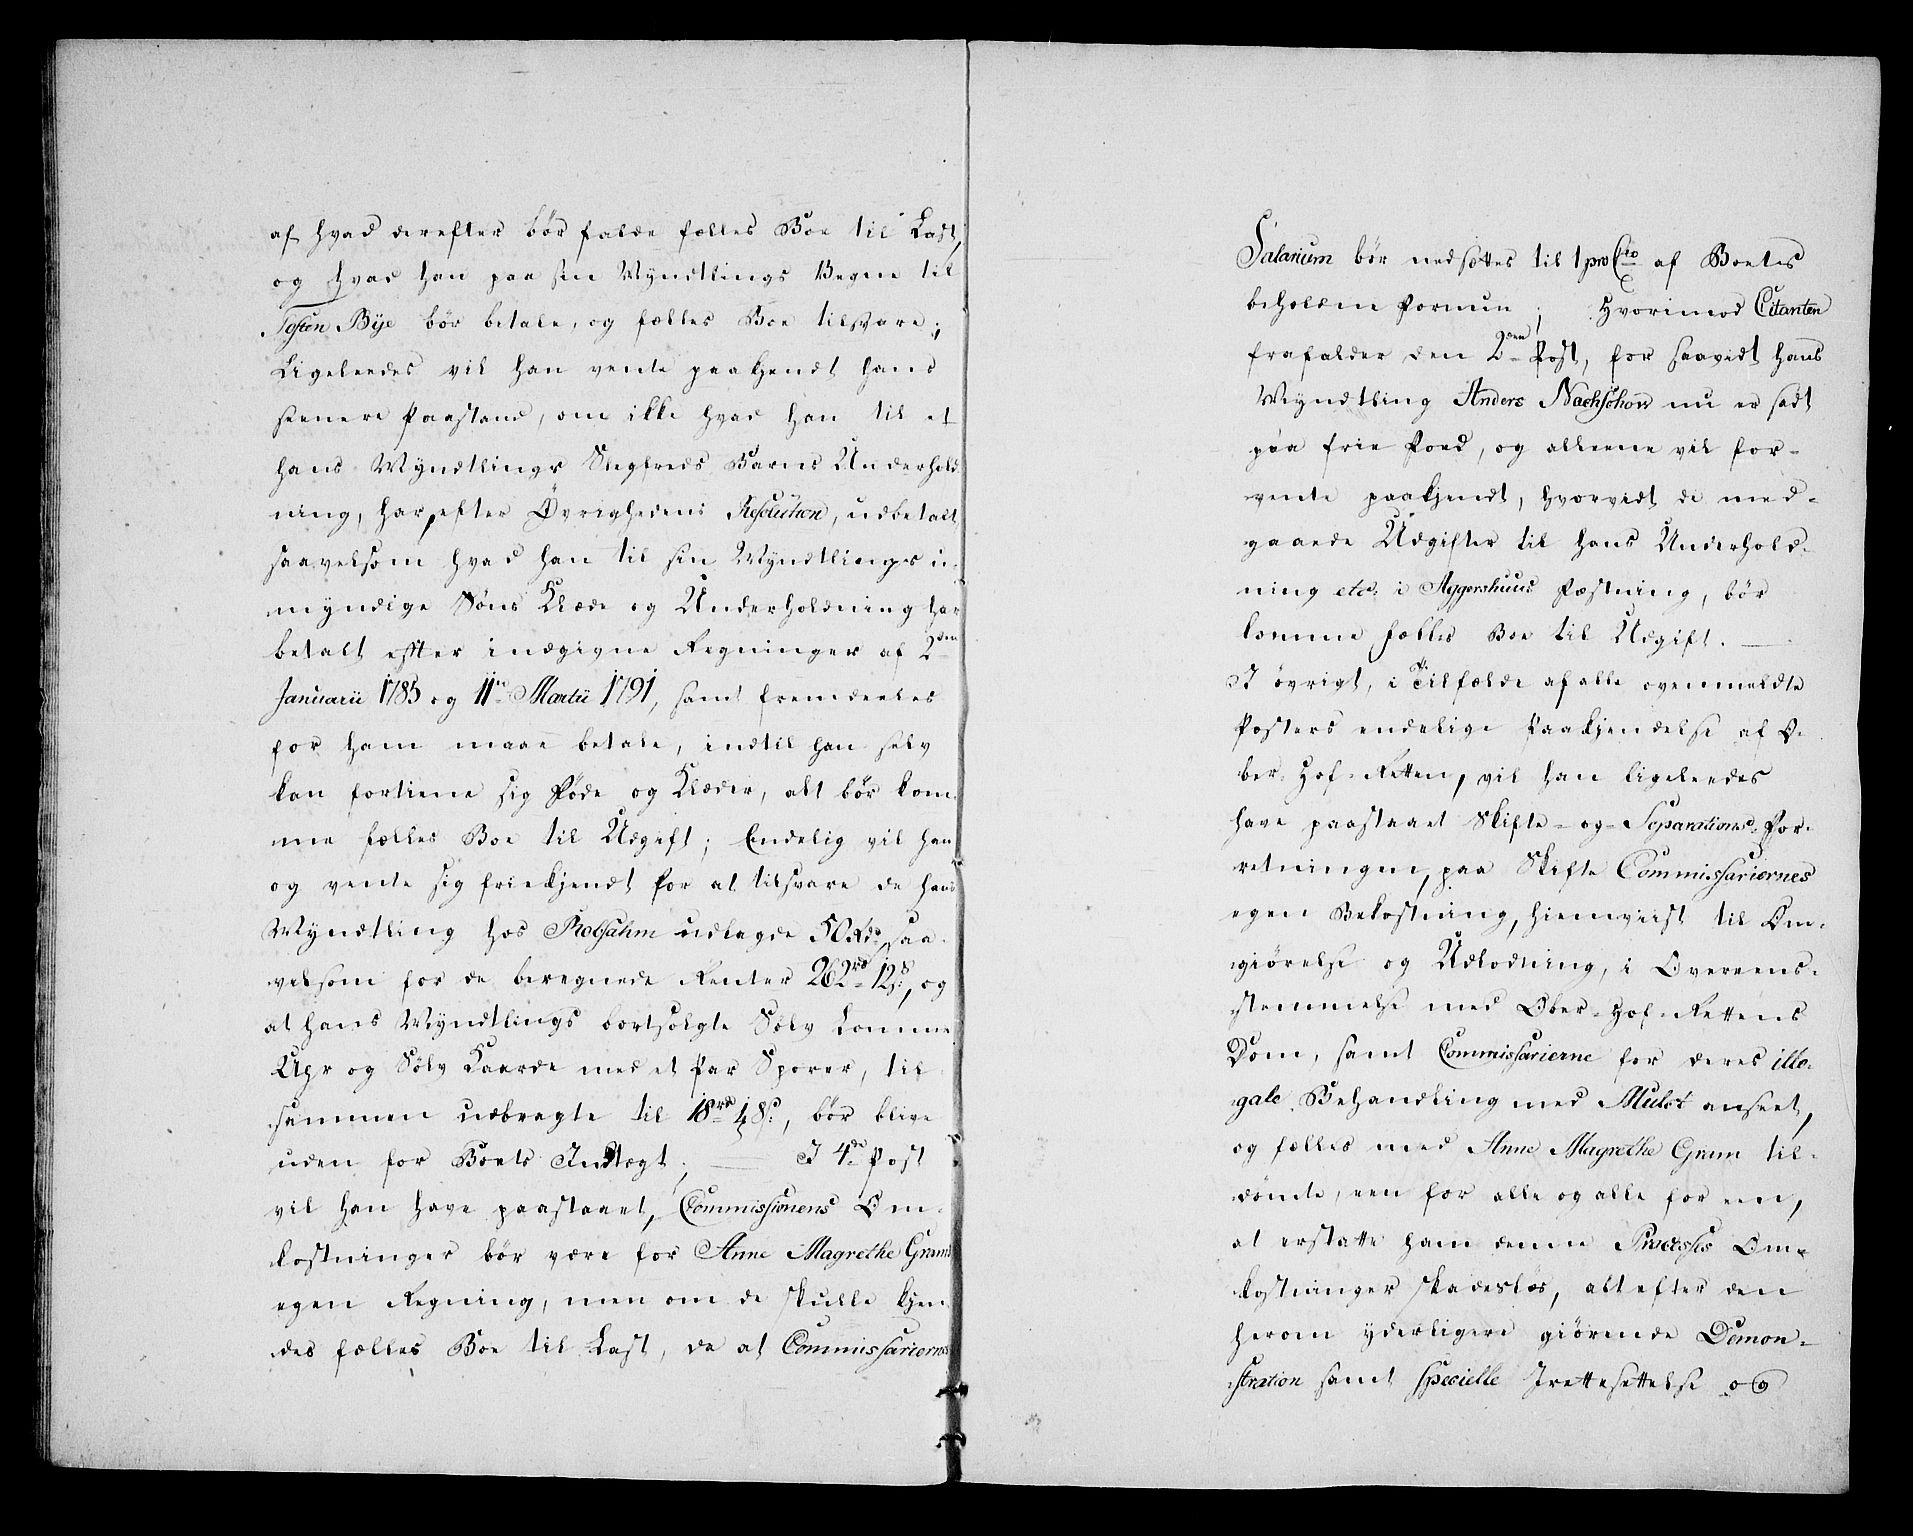 af hvad derefter bør falde fælles Boe til Last,
og hvad han paa sin Myndtlings Vegne til
Tosten Bije bør betale, og fælles Boe tilsvare;
Ligeleedes vil han vente paakjendt hans
seenere Paastand, om ikke hvad han til et
hans Myndtlings Slegfreds Barns Underhold-
ning, har, efter Øvrighedens Resolution, udbetalt
saavelsom hvad han til sin Myndtlings u-
myndige Søns Klæde og Underholdning har
betalt efter indgivne Regninger af 2den
Januarii 1785 og 11te Martii 1791, samt fremdeeles
for ham maae betale, indtil han selv
kan fortiene sig Føde og Klæder, alt bør kom-
me fælles Boe til Udgift; Endelig vil han
og vente sig friekjendt for at tilsvare de hans
Myndtling hos Robsahm udlagde 50 Rdr, saa-
velsom for de beregnede Renter 262rd 12s:, og
at hans Myndtlings bortsolgte Sølv Lomme
Uhr og Sølv Kaarde med et Par Sporer, til-
sammen udbragte til 18rd 48s:, bør blive
uden for Boets Indtægt; — I 4de Post
vil han have paastaaet, Commissionens Om-
kostninger bør være for Anne Magrethe Grams
egen Regning, men om de skulle kjen-
des fælles Boe til Last, da at Commissariernes
Salarium bør nedsættes til 1 pro Cto af Boetes
beholdne Formue; Hvorimod Citanten
frafalder den 2den Post, for saavidt hans
Myndtling Anders Nachschow nu er sadt
paa frie Foed, og alleene vil for-
vente paakjendt, hvorvidt de med-
gaaede Udgifter til hans Underhold-
ning etc: i Aggershuus Fæstning, bør
komme fælles Boe til Udgift. —
I øvrigt, i Tilfælde af alle ovenmeldte
Posters endelige Paakjendelse af O-
ber-Hof-Retten, vil han ligeleedes
have paastaaet Skifte- og Separations-For-
retningen, paa Skifte Commissariernes
egen Bekostning, hiemviist til Om-
giørelse og Udlodning, i Overeens-
stemmelse med Ober-Hof-Rettens
Dom, samt Commissarierne for deres ille-
gale Behandling med Mulct anseet,
og fælles med Anne Magrethe Gram til-
dømte, een for alle og alle for een,
at erstatte ham denne Processes Om-
kostninger skadesløs, alt efter den
herom yderligere giørende Demon-
stration samt specielle Irettesettelse og